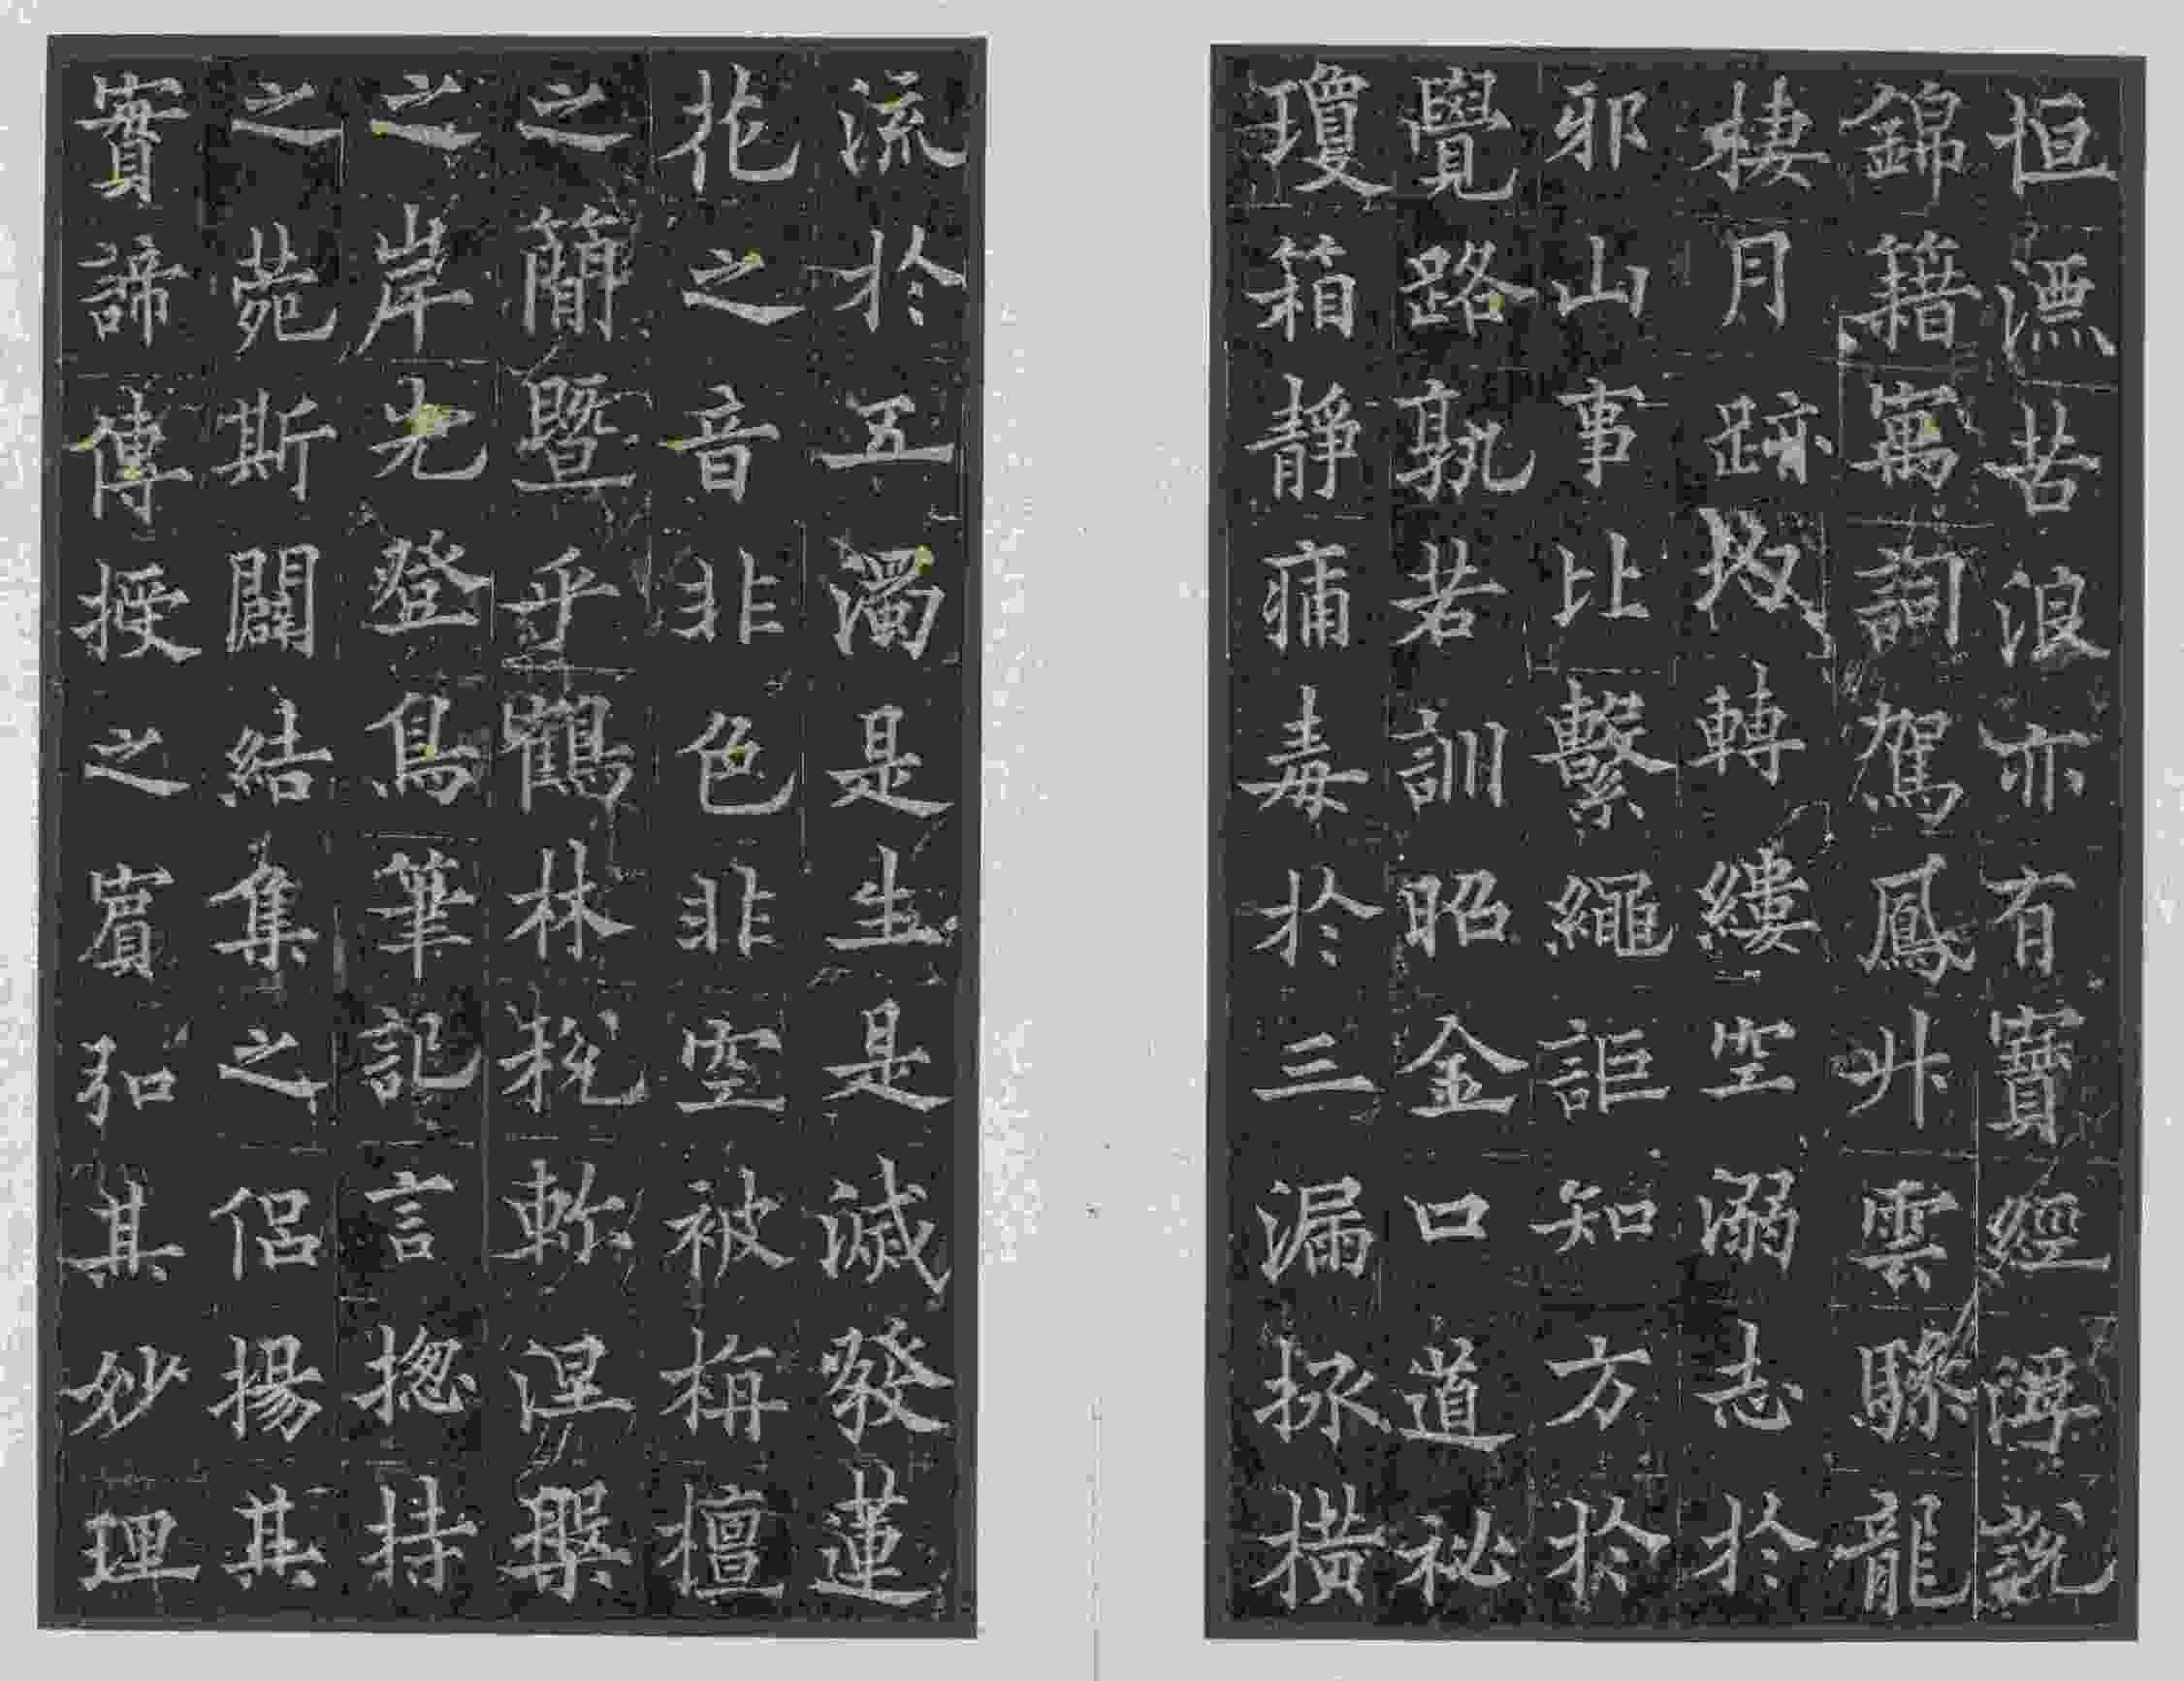 恒漂苦浪亦有寶經浮說
錦籍寓詞駕鳳升雲驂龍
棲月跡均轉縷空溺志於
邪山事比繫繩詎知方於
覺路孰若訓昭金口道祕
瓊箱靜痡毒於三漏拯橫
流於五濁是生是滅發蓮
花之音非色非空被栴檀
之簡暨乎鶴林稅軫涅槃
之岸先登鳥筆記言揔持
之菀斯闢結集之侶揚其
實諦傳授之賓弘其妙理